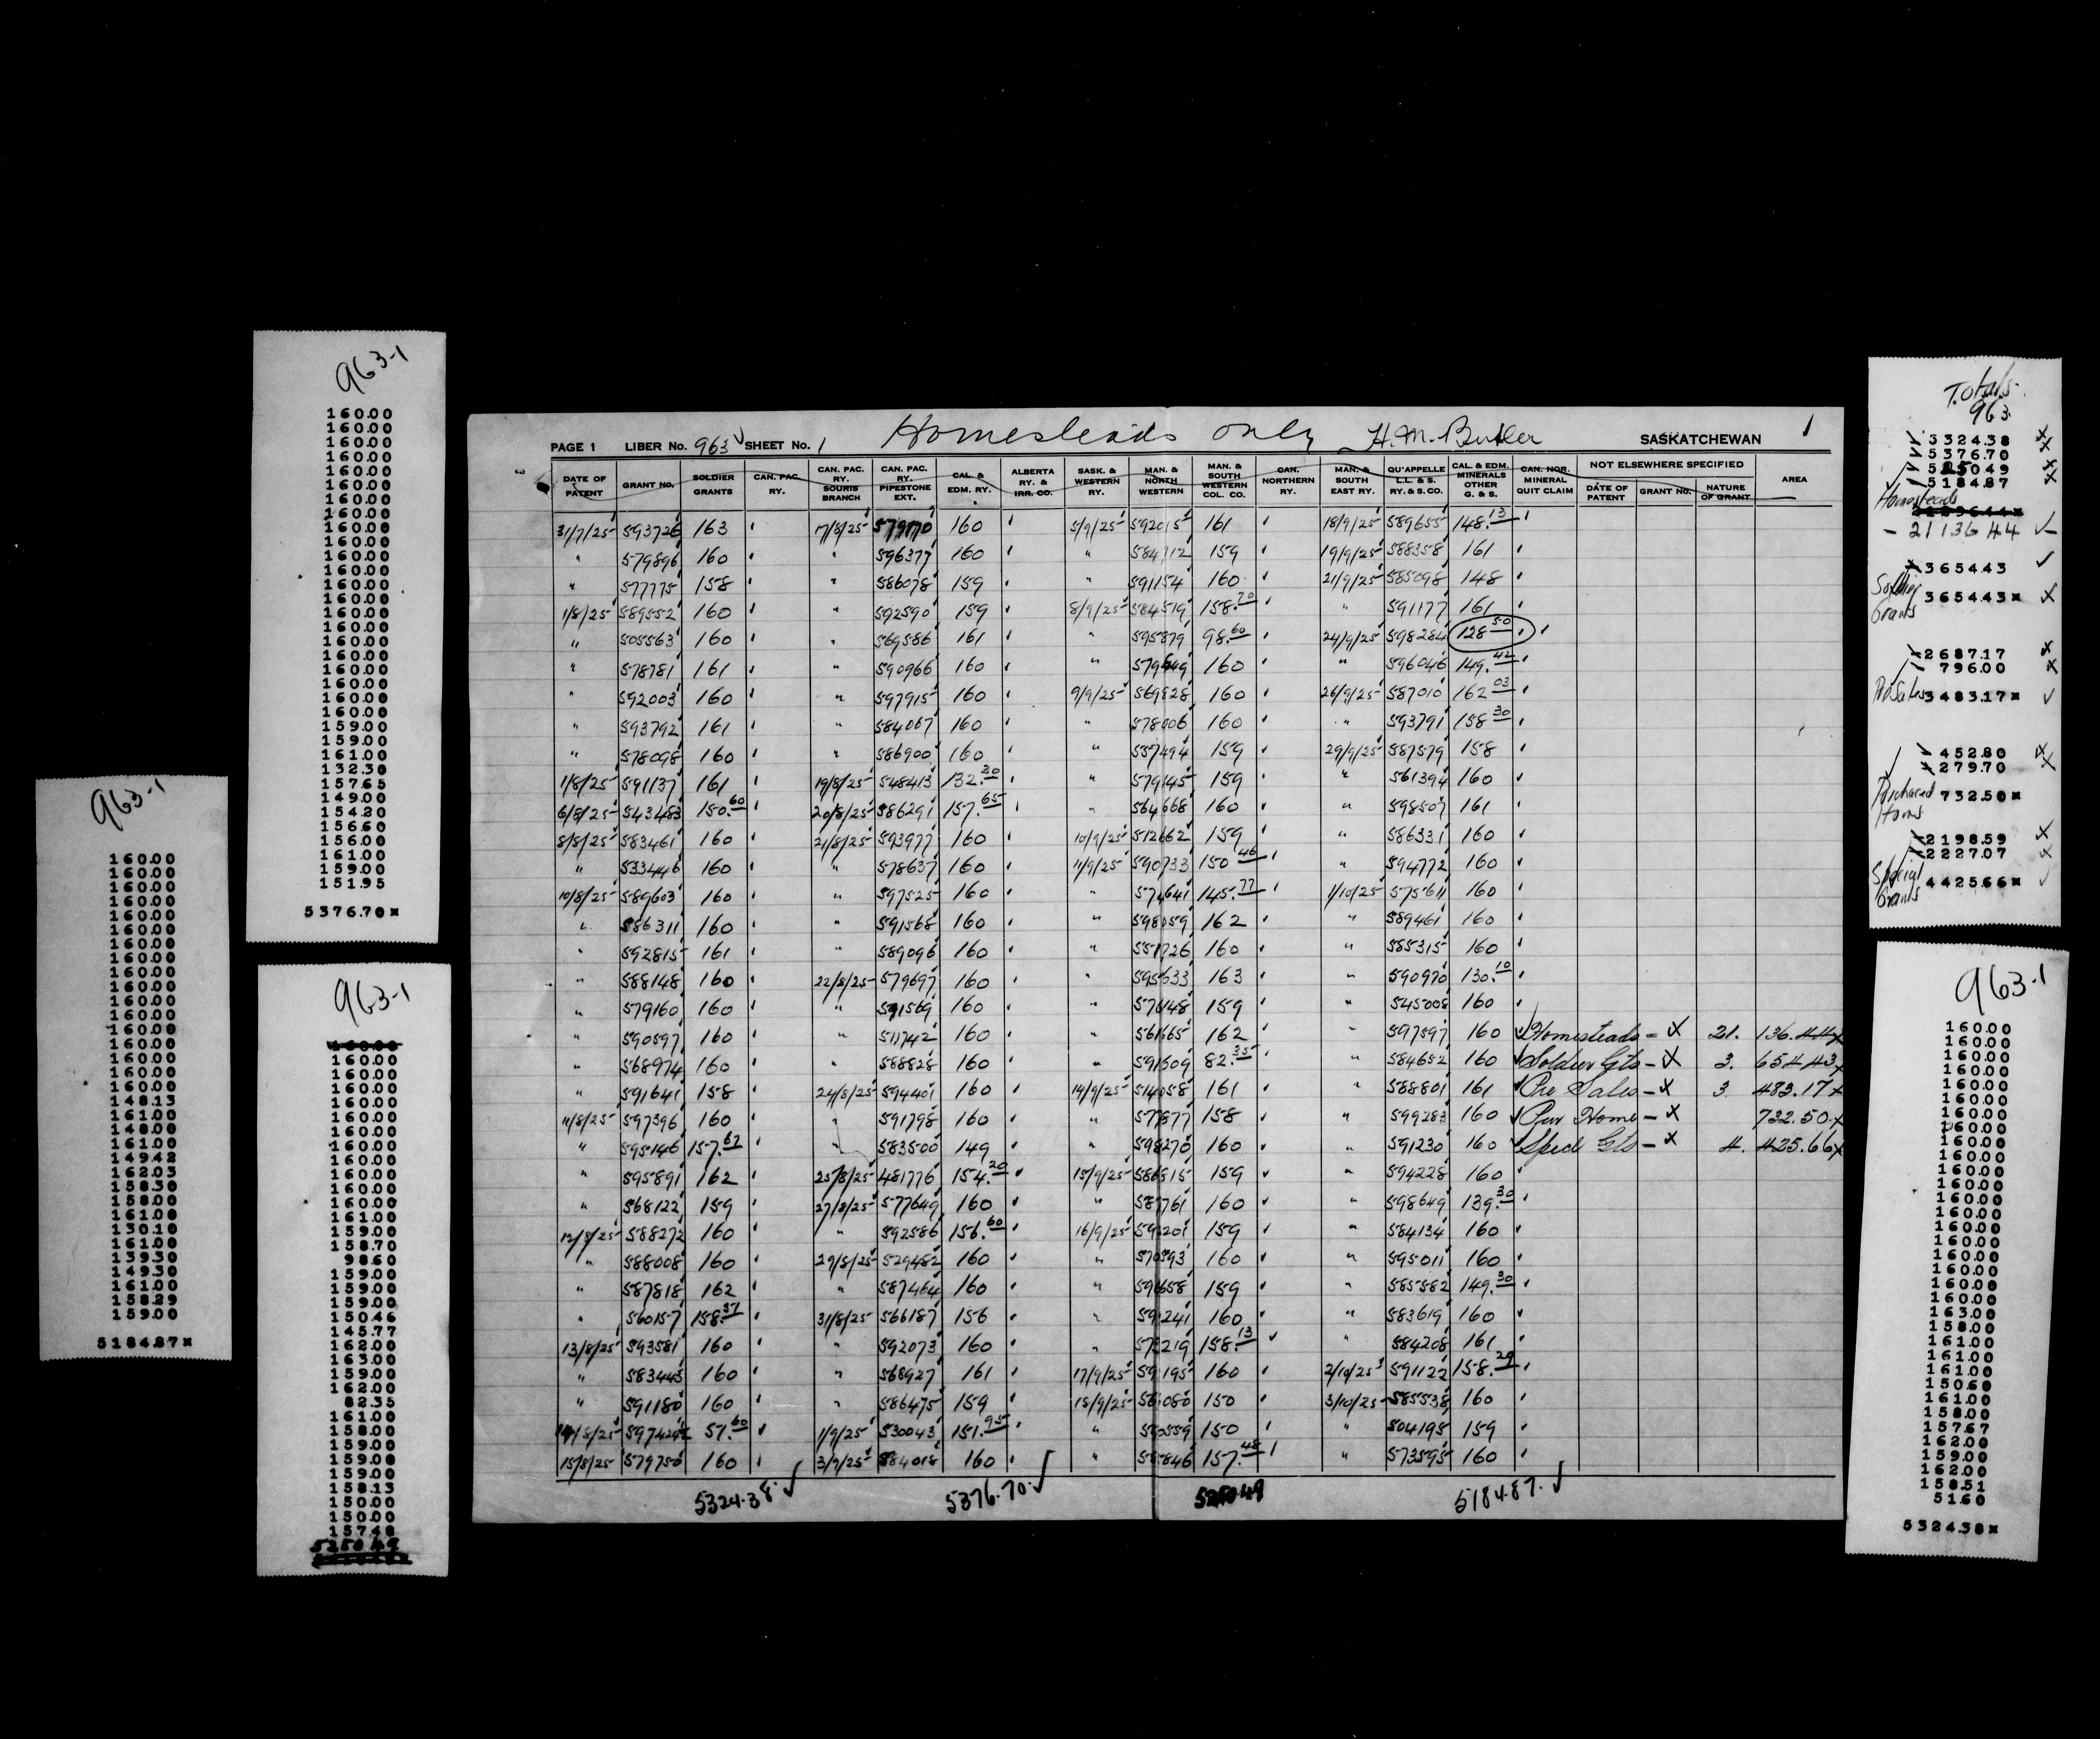 963-1
160.00
160.00
160.00
160.00
160.00
160.00
160.00
160.00
160.00
160.00
160.00
160.00
160.00
160.00
160.00
160.00
160.00
160.00
160.00
160.00
160.00
160.00
159.00
159.00
161.00
132.30
157.65
149.00
154.20
156.60
156.00
161.00
159.00
151.95
5376.70*
963-1
160.00
160.00
160.00
160.00
160.00
160.00
160.00
160.00
160.00
160.00
160.00
160.00
160.00
160.00
160.00
160.00
160.00
148.13
161.00
148.00
161.00
149.42
162.03
158.30
158.00
161.00
130.10
161.00
139.30
149.30
161.00
158.29
159.00
5184.87*
963-1
160.00
160.00
160.00
160.00
160.00
160.00
160.00
160.00
160.00
160.00
160.00
161.00
159.00
158.70
98.60
159.00
159.00
159.00
150.46
145.77
162.00
163.00
159.00
162.00
82.35
161.00
158.00
159.00
159.00
159.00
158.13
150.00
150.00
157.48
5250.49
PAGE 1 LIBER No. 963 SHEET No. 1 Homesteads only H.M. Butler SASKATCHEWAN 1
DATE OF PATENT GRANT NO. SOLDIER GRANTS CAN. PAC. RY. CAN. PAC. RY. SOURIS BRANCH CAN. PAC. RY. PIPESTONE EXT. CAL. & EDM. RY. ALBERTA RY. & IRR. CO. SASK. & WESTERN RY. MAN. & NORTH WESTERN MAN. & SOUTH WESTERN COL. CO. CAN. NORTHERN RY. MAN. & SOUTH EAST RY. QU'APPELLE L.L. & S. RY. & S. CO. CAL. & EDM. MINERALS OTHER G. & S. CAN. NOR. MINERAL QUIT CLAIM NOT ELSEWHERE SPECIFIED DATE OF PATENT GRANT NO. NATURE OF GRANT AREA
31/7/25 593726 163 17/8/25 579170 160 5/9/25 592015 161 18/9/25 589655 148.13
" 579896 160 " 596377 160 " 584712 159 19/9/25 588358 161
" 577775 158 " 586078 159 " 591154 160 21/9/25 585098 148
1/8/25 589552 160 " 592590 159 8/9/25 584519 158.70 " 591177 161
" 505563 160 " 569586 161 " 595879 98.60 24/9/25 598284 128.50
" 578781 161 " 590966 160 " 579649 160 " 596046 149.42
" 592003 160 " 597915 160 9/9/25 569828 160 26/9/25 587010 162.03
" 593792 161 " 584067 160 " 578006 160 " 593791 158.30
" 578098 160 " 586900 160 " 557494 159 29/9/25 587579 158
1/8/25 591137 161 19/8/25 548413 132.30 " 579145 159 " 561394 160
6/8/25 543483 150.60 20/8/25 586291 157.65 " 564668 160 " 598507 161
8/8/25 583461 160 21/8/25 593977 160 10/9/25 512662 159 " 586331 160
" 533446 160 " 578637 160 11/9/25 590733 150.46 " 594772 160
10/8/25 589603 160 " 597525 160 " 145.77 1/10/25 575611 160
" 586311 160 " 591568 160 " 598059 162 " 589461 160
" 592815 161 " 589096 160 " 160 " 585315 160
" 588148 160 22/8/25 579697 160 " 595633 163 " 590970 130.10
" 579160 160 " 591569 160 " 159 " 545008 160
" 590597 160 " 511742 160 " 162 " 597597 160 Homesteads - x 21. 136.44x
" 568974 160 " 588828 160 " 591509 82.35 " 584652 160 Soldier Gts - x 3. 654.43x
" 591641 158 24/8/25 594401 160 14/9/25 514058 161 " 568801 161 Pre Sales - x 3 483.17x
11/8/25 597396 160 " 591798 160 " 158 " 599283 160 Pur Home - x 732.50x
" 595146 157.67 " 583500 149 " 598270 160 " 591230 160 Specl Gts - x 4. 425.66x
" 595891 162 25/8/25 481776 154.20 15/9/25 586515 159 " 594228 160
" 568122 159 27/8/25 577649 160 " 160 " 598649 139.30
12/8/25 588272 160 " 592586 156.60 16/9/25 159 " 584134 160
" 588008 160 29/8/25 529482 160 " 160 " 595011 160
" 587818 162 " 587464 160 " 159 " 585582 149.30
" 560157 158.51 31/8/25 566187 156 " 160 " 583619 160
13/8/25 593581 160 " 592073 160 " 158.13 " 584208 161
" 583443 160 " 568927 161 17/9/25 160 2/10/25 591122 158.29
" 591180 160 " 586475 159 18/9/25 150 3/10/25 585538 160
14/8/25 597424 51.60 1/9/25 530043 151.95 " 150 " 504195 159
15/8/25 579750 160 3/9/25 584018 160 " 157.48 " 573595 160
5324.38 5376.70 5250.49 5184.87
Totals
963
5324.38
5376.70
525049
5184.87
Homesteads
- 21136 44
3654.43
Soldier
Grants 3654.43*
2687.17
796.00
PreSales 3483.17*
452.80
279.70
Purchased 732.50*
Homs
2198.59
2227.07
Special
Grants 4425.66*
963-1
160.00
160.00
160.00
160.00
160.00
160.00
160.00
160.00
160.00
160.00
160.00
160.00
160.00
160.00
160.00
160.00
160.00
160.00
160.00
160.00
163.00
158.00
161.00
161.00
161.00
150.60
161.00
158.00
157.67
162.00
159.00
162.00
158.51
51.60
5324.38*